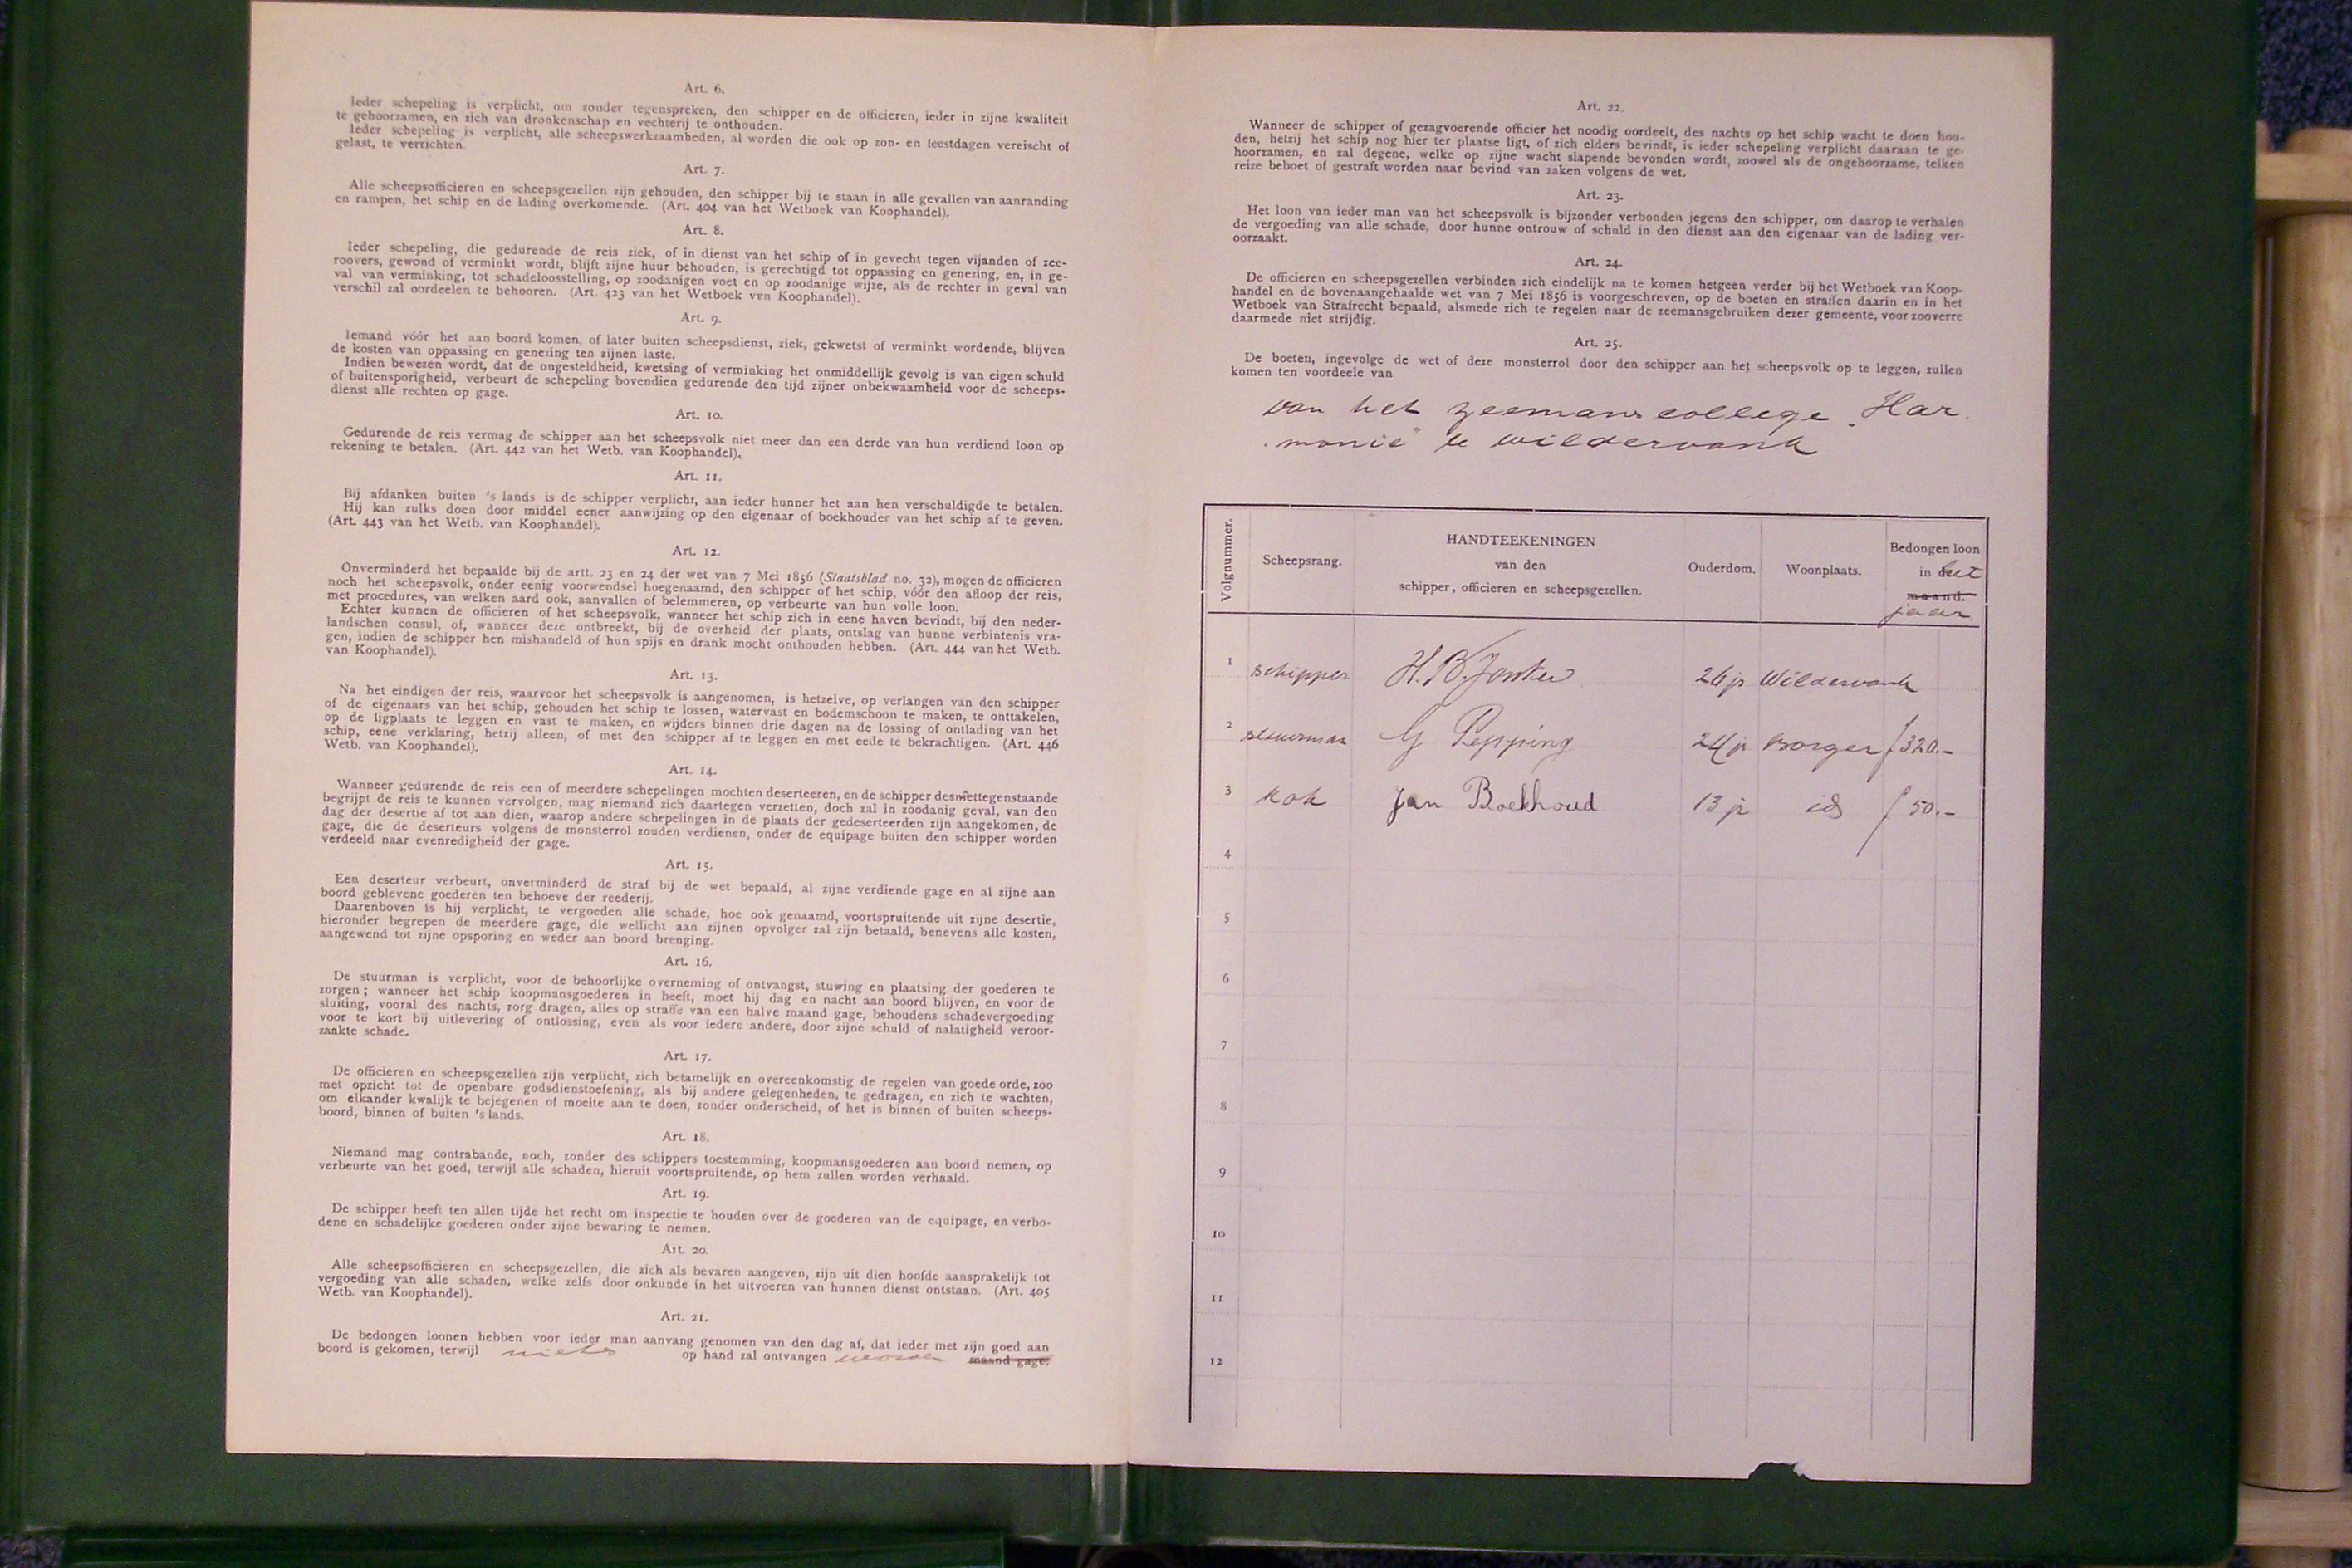 Art. 6.
Ieder schepeling is verplicht, om zonder tegenspreken, den schipper en de officieren, ieder in zijne kwaliteit
te gehoorzamen, en zich van dronkenschap en vechterij te onthouden.
Ieder schepeling is verplicht, alle scheepswerkzaamheden, al worden die ook op zon- en feestdagen vereischt of
gelast, te verrichten.
Art. 7.
Alle scheepsofficieren en scheepsgezellen zijn gehouden, den schipper bij te staan in alle gevallen van aanranding
en rampen, het schip en de lading overkomende. (Art. 404 van het Wetboek van Koophandel).
Art. 8.
Ieder schepeling, die gedurende de reis ziek, of in dienst van het schip of in gevecht tegen vijanden of zee-
roovers, gewond of verminkt wordt, blijft zijne huur behouden, is gerechtigd tot oppassing en genezing, en, in ge-
val van verminking, tot schadeloosstelling, op zoodanigen voet en op zoodanige wijze, als de rechter in geval van
verschil zal oordeelen te behooren. (Art. 423 van het Wetboek van Koophandel).
Art. 9.
Iemand vóór het aan boord komen, of later buiten scheepsdienst, ziek, gekwetst of verminkt wordende, blijven
de kosten van oppassing en genezing ten zijnen laste.
Indien bewezen wordt, dat de ongesteldheid, kwetsing of verminking het onmiddellijk gevolg is van eigen schuld
of buitensporigheid, verbeurt de schepeling bovendien gedurende den tijd zijner onbekwaamheid voor de scheeps-
dienst alle rechten op gage.
Art. 10.
Gedurende de reis vermag de schipper aan het scheepsvolk niet meer dan een derde van hun verdiend loon op
rekening te betalen. (Art. 442 van het Wetb. van Koophandel).
Art. 11.
Bij afdanken buiten 's lands is de schipper verplicht, aan ieder hunner het aan hen verschuldigde te betalen.
Hij kan zulks doen door middel eener aanwijzing op den eigenaar of boekhouder van het schip af te geven.
(Art. 443 van het Wetb. van Koophandel).
Art. 12.
Onverminderd het bepaalde bij de artt. 23 en 24 der wet van 7 Mei 1856 (Staatsblad no. 32), mogen de officieren
noch het scheepsvolk, onder eenig voorwendsel hoegenaamd, den schipper of het schip, vóór den afloop der reis,
met procedures, van welken aard ook, aanvallen of belemmeren, op verbeurte van hun volle loon.
Echter kunnen de officieren of het scheepsvolk, wanneer het schip zich in eene haven bevindt, bij den neder-
landschen consul, of, wanneer deze ontbreekt, bij de overheid der plaats, ontslag van hunne verbintenis vra-
gen, indien de schipper hen mishandeld of hun spijs en drank mocht onthouden hebben. (Art. 444 van het Wetb.
van Koophandel).
Art. 13.
Na het eindigen der reis, waarvoor het scheepsvolk is aangenomen, is hetzelve, op verlangen van den schipper
of de eigenaars van het schip, gehouden het schip te lossen, watervast en bodemschoon te maken, te onttakelen,
op de ligplaats te leggen en vast te maken, en wijders binnen drie dagen na de lossing of ontlading van het
schip, eene verklaring, hetzij alleen, of met den schipper af te leggen en met eede te bekrachtigen. (Art. 446
Wetb. van Koophandel).
Art. 14.
Wanneer gedurende de reis een of meerdere schepelingen mochten deserteeren, en de schipper desniettegenstaande
begrijpt de reis te kunnen vervolgen, mag niemand zich daartegen verzetten, doch zal in zoodanig geval, van den
dag der desertie af tot aan dien, waarop andere schepelingen in de plaats der gedeserteerden zijn aangekomen, de
gage, die de deserteurs volgens de monsterrol zouden verdienen, onder de equipage buiten den schipper worden
verdeeld naar evenredigheid der gage.
Art. 15.
Een deserteur verbeurt, onverminderd de straf bij de wet bepaald, al zijne verdiende gage en al zijne aan
boord geblevene goederen ten behoeve der reederij.
Daarenboven is hij verplicht, te vergoeden alle schade, hoe ook genaamd, voortspruitende uit zijne desertie,
hieronder begrepen de meerdere gage, die wellicht aan zijnen opvolger zal zijn betaald, benevens alle kosten,
aangewend tot zijne opsporing en weder aan boord brenging.
Art. 16.
De stuurman is verplicht, voor de behoorlijke overneming of ontvangst, stuwing en plaatsing der goederen te
zorgen; wanneer het schip koopmansgoederen in heeft, moet hij dag en nacht aan boord blijven, en voor de
sluiting, vooral des nachts, zorg dragen, alles op straffe van een halve maand gage, behoudens schadevergoeding
voor te kort bij uitlevering of ontlossing, even als voor iedere andere, door zijne schuld of nalatigheid veroor-
zaakte schade.
Art. 17.
De officieren en scheepsgezellen zijn verplicht, zich betamelijk en overeenkomstig de regelen van goede orde, zoo
met opzicht tot de openbare godsdienstoefening, als bij andere gelegenheden, te gedragen, en zich te wachten,
om elkander kwalijk te bejegenen of moeite aan te doen, zonder onderscheid, of het is binnen of buiten scheeps-
boord, binnen of buiten 's lands.
Art. 18.
Niemand mag contrabande, noch, zonder des schippers toestemming, koopmansgoederen aan boord nemen, op
verbeurte van het goed, terwijl alle schaden, hieruit voortspruitende, op hem zullen worden verhaald.
Art. 19.
De schipper heeft ten allen tijde het recht om inspectie te houden over de goederen van de equipage, en verbo-
dene en schadelijke goederen onder zijne bewaring te nemen.
Art. 20.
Alle scheepsofficieren en scheepsgezellen, die zich als bevaren aangeven, zijn uit dien hoofde aansprakelijk tot
vergoeding van alle schaden, welke zelfs door onkunde in het uitvoeren van hunnen dienst ontstaan. (Art. 405
Wetb. van Koophandel).
Art. 21.
De bedongen loonen hebben voor ieder man aanvang genomen van den dag af, dat ieder met zijn goed aan
boord is gekomen, terwijl niets op hand zal ontvangen maand gage.
Art. 22.
Wanneer de schipper of gezagvoerende officier het noodig oordeelt, des nachts op het schip wacht te doen hou-
den, hetzij het schip nog hier ter plaatse ligt, of zich elders bevindt, is ieder schepeling verplicht daaraan te ge-
hoorzamen, en zal degene, welke op zijne wacht slapende bevonden wordt, zoowel als de ongehoorzame, telken
reize beboet of gestraft worden naar bevind van zaken volgens de wet.
Art. 23.
Het loon van ieder man van het scheepsvolk is bijzonder verbonden jegens den schipper, om daarop te verhalen
de vergoeding van alle schade, door hunne ontrouw of schuld in den dienst aan den eigenaar van de lading ver-
oorzaakt.
Art. 24.
De officieren en scheepsgezellen verbinden zich eindelijk na te komen hetgeen verder bij het Wetboek van Koop-
handel en de bovenaangehaalde wet van 7 Mei 1856 is voorgeschreven, op de boeten en straffen daarin en in het
Wetboek van Strafrecht bepaald, alsmede zich te regelen naar de zeemansgebruiken dezer gemeente, voor zooverre
daarmede niet strijdig.
Art. 25.
De boeten, ingevolge de wet of deze monsterrol door den schipper aan het scheepsvolk op te leggen, zullen
komen ten voordeele van
van het zeemanscollege „Har
monie" te Wildervank
Volgnummer. Scheepsrang. HANDTEEKENINGEN van den schipper, officieren en scheepsgezellen. Ouderdom. Woonplaats. Bedongen loon in het maand. jaar
1 schipper H. B. Jonker 26 jr Wildervank
2 stuurman G Pepping 24 jr Borger f 320.-
3 kok Jan Boekhoud 13 jr id f 50.-
4
5
6
7
8
9
10
11
12